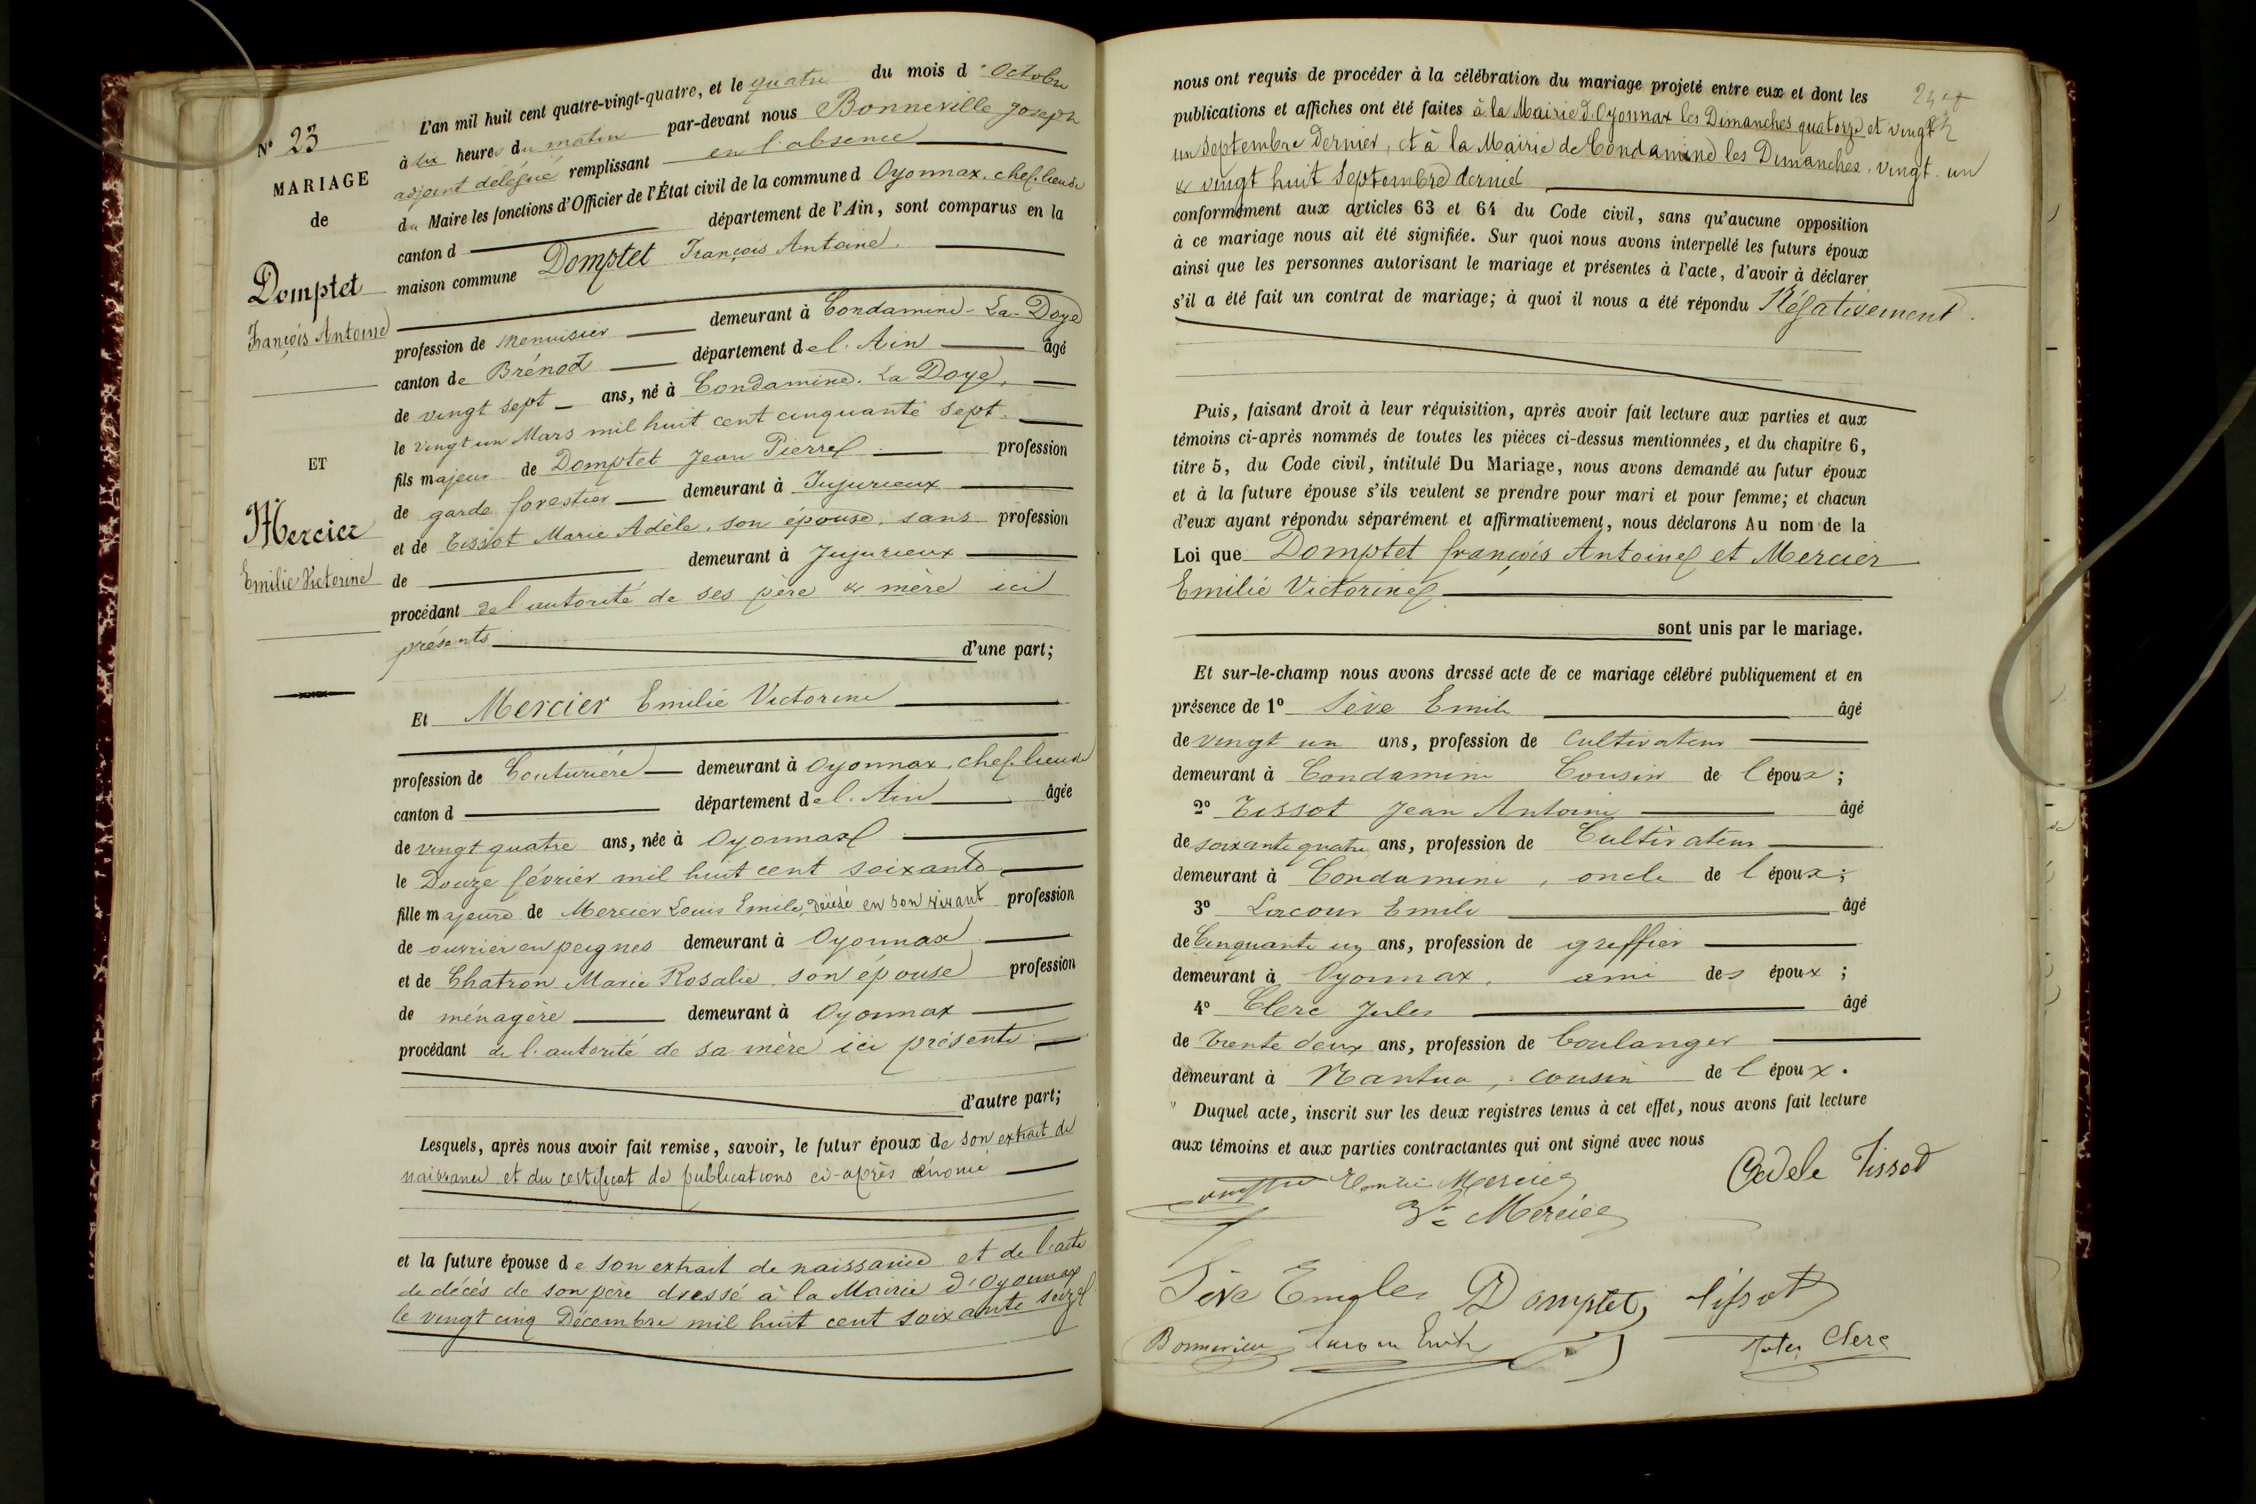 N° 23
MARIAGE
de
Domptet
François Antoine
ET
Mercier
Emilie Victorine
L'an mil huit cent quatre-vingt-quatre, et le quatre du mois d'Octobre
à dix heures du matin par-devant nous Bonneville Joseph
adjoint délégué remplissant en l'absence
du Maire les fonctions d'Officier de l'État civil de la commune d Oyonnax, chef-lieu de
canton d département de l'Ain, sont comparus en la
maison commune Domptet François Antoine
profession de menuisier demeurant à Condamine-La-Doye
canton de Brénod département de l'Ain âgé
de vingt sept ans, né à Condamine-La Doye,
le vingt un Mars mil huit cent cinquante sept
fils majeur de Domptet Jean Pierre profession
de garde forestier demeurant à Jujurieux
et de Tissot Marie Adèle, son épouse, sans profession
de demeurant à Jujurieux
procédant de l'autorité de ses père & mère ici
présents d'une part;
Et Mercier Emilie Victorine
profession de Couturière demeurant à Oyonnax, chef-lieu de
canton d département de l'Ain âgée
de vingt quatre ans, née à Oyonnax
le Douze février mil huit cent soixante
fille majeure de Mercier Louis Emile, décédé en son vivant profession
de ouvrier en peignes demeurant à Oyonnax
et de Chatron Marie Rosalie, son épouse profession
de ménagère demeurant à Oyonnax
procédant de l'autorité de sa mère ici présente
d'autre part;
Lesquels, après nous avoir fait remise, savoir, le futur époux de son extrait de
naissance et du certificat de publications ci-après énoncé
et la future épouse de son extrait de naissance et de l'acte
de décès de son père dressé à la Mairie d'Oyonnax
le vingt cinq Décembre mil huit cent soixante seize
nous ont requis de procéder à la célébration du mariage projeté entre eux et dont les
publications et affiches ont été faites à la Mairie d'Oyonnax les Dimanches quatorze et vingt
un septembre dernier, et à la Mairie de Condamine les Dimanches vingt-un
& vingt huit Septembre dernier
conformément aux articles 63 et 64 du Code civil, sans qu'aucune opposition
à ce mariage nous ait été signifiée. Sur quoi nous avons interpellé les futurs époux
ainsi que les personnes autorisant le mariage et présentes à l'acte, d'avoir à déclarer
s'il a été fait un contrat de mariage; à quoi il nous a été répondu Négativement.
Puis, faisant droit à leur réquisition, après avoir fait lecture aux parties et aux
témoins ci-après nommés de toutes les pièces ci-dessus mentionnées, et du chapitre 6,
titre 5, du Code civil, intitulé Du Mariage, nous avons demandé au futur époux
et à la future épouse s'ils veulent se prendre pour mari et pour femme; et chacun
d'eux ayant répondu séparément et affirmativement, nous déclarons Au nom de la
Loi que Domptet françois Antoine et Mercier
Emilie Victorine
sont unis par le mariage.
Et sur-le-champ nous avons dressé acte de ce mariage célébré publiquement et en
présence de 1° Sève Emile âgé
de vingt un ans, profession de Cultivateur
demeurant à Condamine Cousin de l'époux;
2° Tissot Jean Antoine âgé
de soixante quatre ans, profession de Cultivateur
demeurant à Condamine, oncle de l'époux;
3° Lacour Emile âgé
de Cinquante un ans, profession de greffier
demeurant à Oyonnax, ami des époux;
4° Clerc Jules âgé
de trente deux ans, profession de boulanger
demeurant à Nantua, cousin de l'époux.
Duquel acte, inscrit sur les deux registres tenus à cet effet, nous avons fait lecture
aux témoins et aux parties contractantes qui ont signé avec nous
Emilie Mercier Adele Tissot
Ve Mercier
Sève Emile Domptet Tissot
Bonneville Lacour Emile Jules Clerc